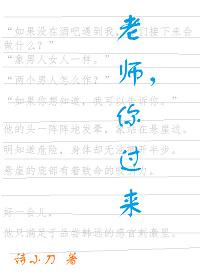 老师，你过来
“如果没在酒吧遇到我，
们接下来会
做什么？”
“象男人女人一样。”
“两个男人怎么作？”
“如果你想知道，我可以告诉你。”
他的头一阵阵地发晕，
明知道危险，身体却无
半步。
悬崖的底部有着致命的
力。
好一会儿，
他只满足于品尝韩远的感官刺激里。
诗小刀 著